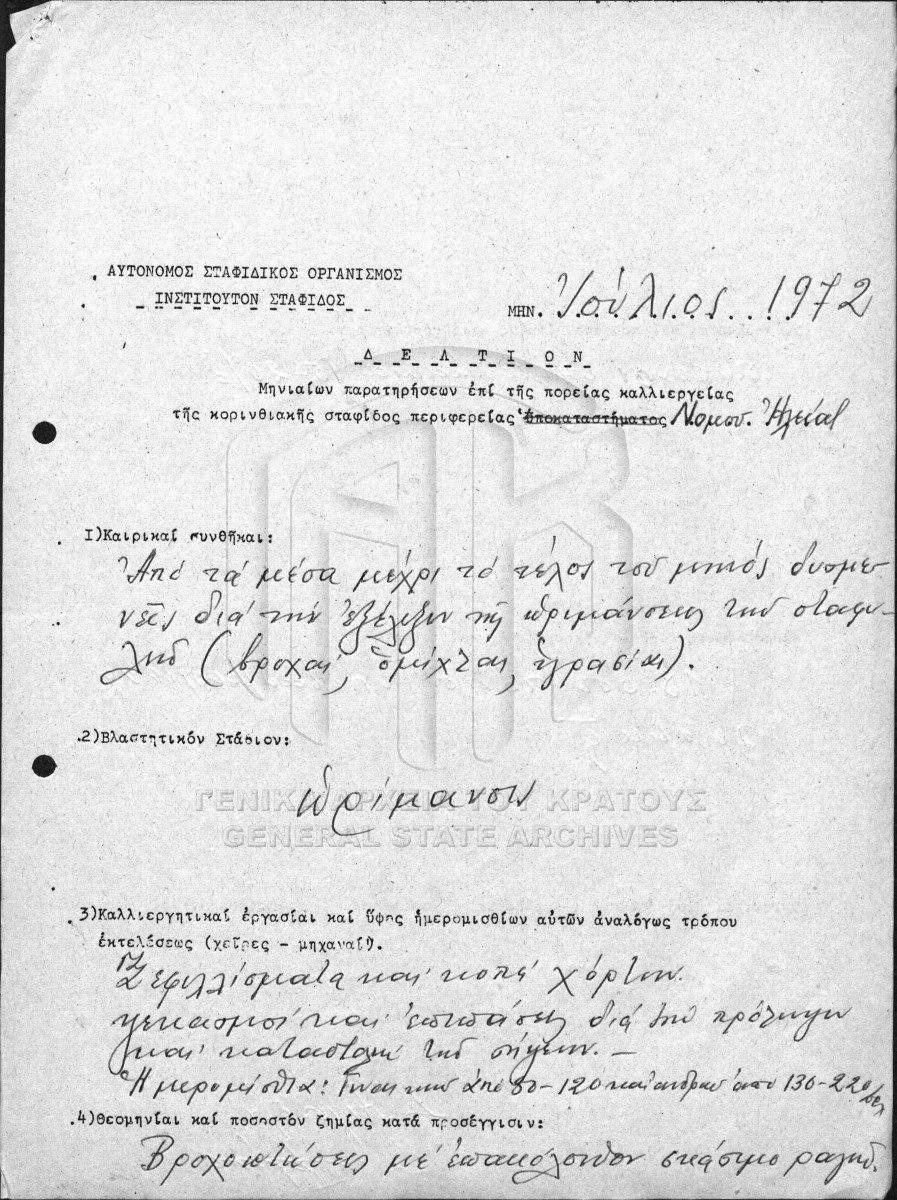 ΑΥΤΟΝΟΜΟΣ ΣΤΑΦΙΔΙΚΟΣ ΟΡΓΑΝΙΣΜΟΣ
ΙΝΣΤΙΤΟΥΤΟΝ ΣΤΑΦΙΔΟΣ
ΜΗΝ. Ἰούλιος 1972
Δ Ε Λ Τ Ι Ο Ν
Μηνιαίων παρατηρήσεων ἐπί τῆς πορείας καλλιεργείας
τῆς κορινθιακῆς σταφίδος περιφερείας Ὑποκαταστήματος Νομοῦ Ἠλείας
1)Καιρικαί συνθῆκαι:
Ἀπό τά μέσα μέχρι τό τέλος τοῦ μηνός δυσμε-
νεῖς διά τήν ἐξέλιξιν τῆς ὡριμάνσεως τῶν σταφυ-
λῶν (βροχαί, ὁμίχλαι, ὑγρασίαι).
2)Βλαστητικόν Στάδιον:
ὡρίμανσις
ΓΕΝΙΚΑ ΑΡΧΕΙΑ ΤΟΥ ΚΡΑΤΟΥΣ
GENERAL STATE ARCHIVES
3)Καλλιεργητικαί ἐργασίαι καί ὕψος ἡμερομισθίων αὐτῶν ἀναλόγως τρόπου
ἐκτελέσεως (χεῖρες - μηχαναί).
Ξεφυλλίσματα καί κοπή χόρτων.
ψεκασμοί καί ἐπιπάσεις διά τήν πρόληψιν
καί καταστολή τῶν σήψεων.—
Ἡμερομίσθια: Γυναικῶν ἀπό 80-120 καί ἀνδρῶν ἀπό 130-220 δρχ
4)Θεομηνίαι καί ποσοστόν ζημίας κατά προσέγγισιν:
Βροχοπτώσεις μέ ἐπακόλουθον σκάσιμο ραγῶν.